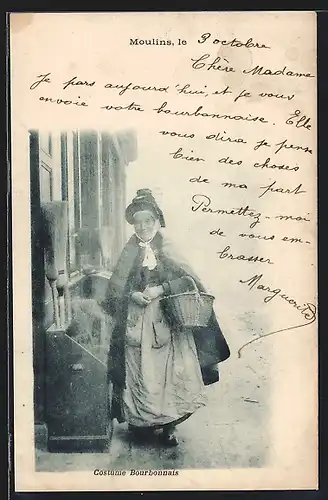 Moulins, le 9 octobre
Chère Madame
Je pars aujourd'hui, et je vous
envoie votre bourbonnaise. Elle
vous dira je pense
bien des choses
de ma part
Permettez-moi
de vous em-
brasser
Marguerite
Costume Bourbonnais